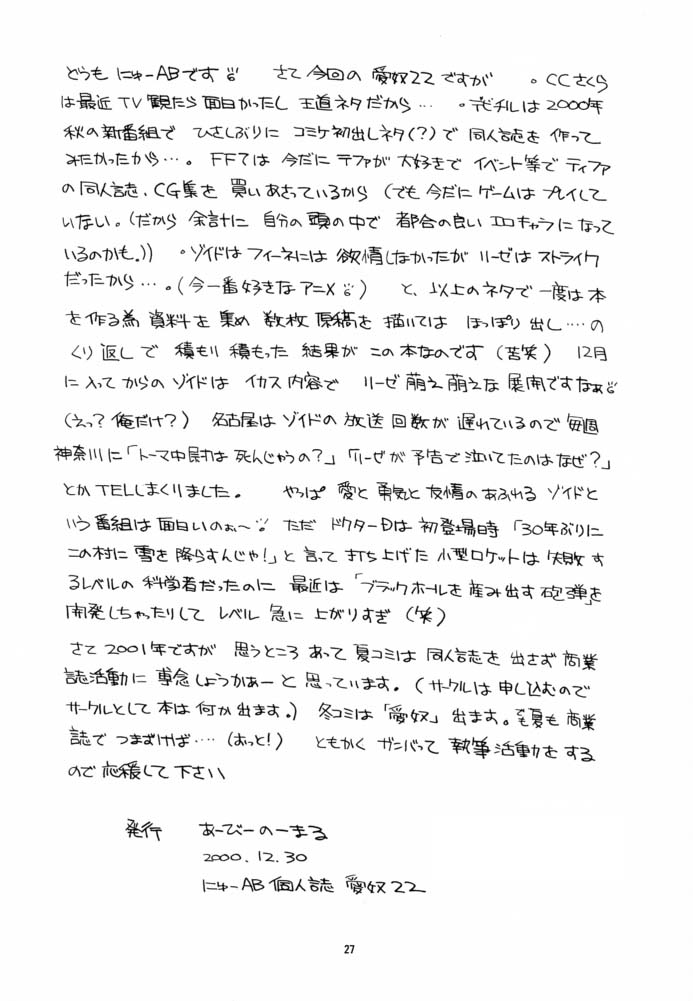 どうも にゅーABです さて 今回の 愛奴22ですが 。CCさくら
は最近 TV 観たら 面白かったし 王道ネタだから… 。デビチルは 2000年
秋の新番組で ひさしぶりに コミケ初出しネタ(?)で 同人誌を 作って
みたかったから…。 FF7は 今だに ティファが 大好きで イベント等で ティファ
の同人誌、CG集を 買いあさっているから (でも今だに ゲームは プレイして
いない。(だから 余計に 自分の頭の中で 都合の良い エロキャラになって
いるのかも。)) 。ゾイドはフィーネには 欲情しなかったが リーゼは ストライク
だったから…。(今一番好きなアニメ) と、以上のネタで 一度は本
を作る為 資料を集め 数枚 原稿を 描いては ほっぽり出し…の
くり返しで 積もり積もった 結果が この本なのです (苦笑) 12月
に入ってからの ゾイドは イカス内容で リーゼ 萌え萌えな 展開ですなぁ
(えっ? 俺だけ?) 名古屋は ゾイドの 放送回数が 遅れているので 毎週
神奈川に「トーマ中尉は 死んじゃうの?」「リーゼが 予告で泣いてたのはなぜ?」
とか TELしまくりました。 やっぱ 愛と 勇気と 友情の あふれる ゾイドと
いう番組は 面白いのぉ〜 ただ ドクターDは 初登場時 「30年ぶりに
この村に 雪を降らすんじゃ!」と 言って 打ち上げた 小型ロケットは 失敗す
るレベルの 科学者だったのに 最近は 「ブラックホールを 産み出す 砲弾」を
開発しちゃったりして レベル 急に 上がりすぎ (笑)
さて 2001年ですが 思うところ あって 夏コミは 同人誌を 出さず 商業
誌活動に 専念しようかぁーと 思っています。(サークルは 申し込むので
サークルとして 本は 何か 出ます。) 冬コミは「愛奴」出ます。でも夏も 商業
誌で つまずけば…(おっと!) ともかく ガンバって 執筆活動をする
ので 応援して下さい
発行 あーびーのーまる
2000.12.30
にゅーAB 個人誌 愛奴22
27